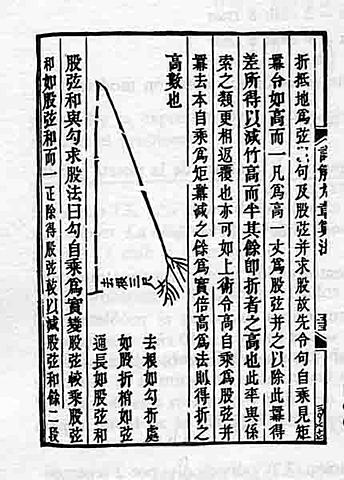 折抵地爲弦句及股弦并求股故先令句自乘見矩
冪令如高而一凡爲高一丈爲股弦并之以除此冪得
差所得以減竹高而半其餘即折者之高也此率與係
索之類更相返覆也亦可如上術令高自乘爲股弦并
冪去本自乘爲矩冪減之餘爲實倍高爲法則得折之
高數也
去根三尺
去根如勾折處
如股折梢如弦
通長如股弦和
股弦和與勾求股法曰勾自乘爲實變股弦較乘股弦
和如股弦和而一正除得股弦較以減股弦和餘二段
詳解九章算法